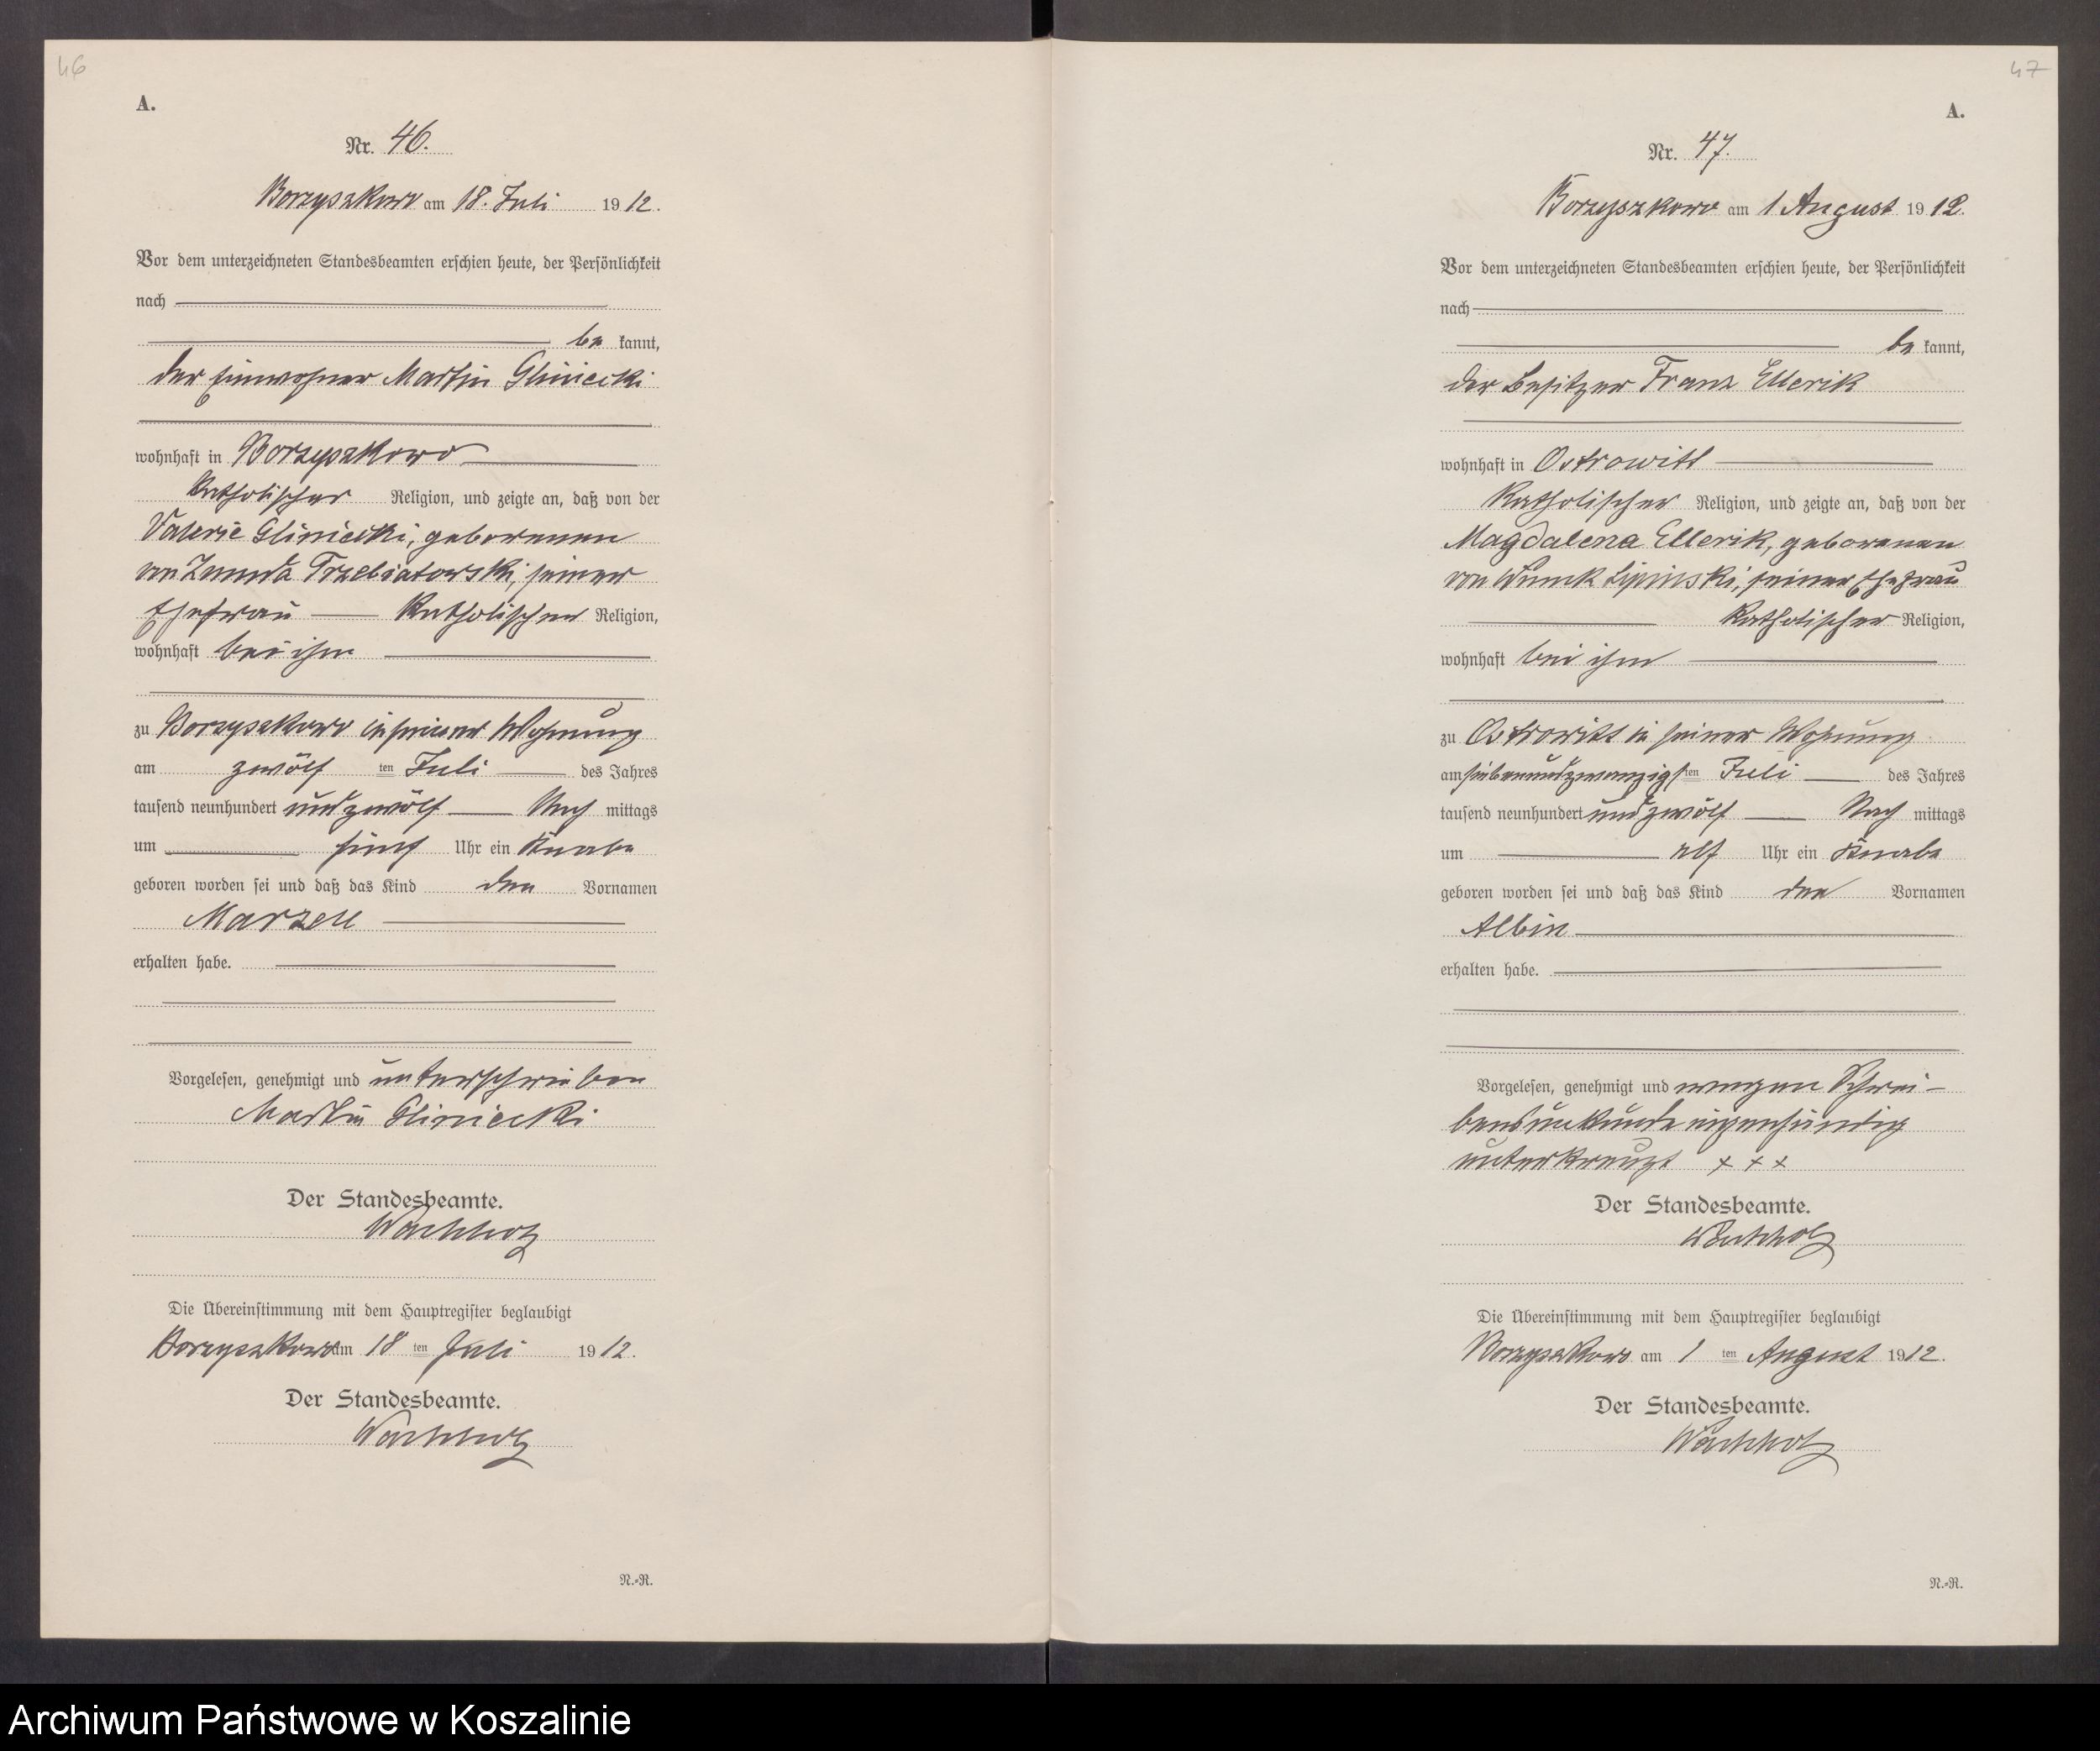 46
A.
Nr. 46.
Borzyszkowo am 18. Juli 1912.
Vor dem unterzeichneten Standesbeamten erschien heute, der Persönlichkeit
nach
be kannt,
der Einwohner Martin Gliniecki
wohnhaft in Borzyszkowo
katholischer Religion, und zeigte an, daß von der
Valerie Gliniecki, geborenen
von Zmuda Trzebiatowski, seiner
Ehefrau katholischer Religion,
wohnhaft bei ihm
zu Borzyszkowo in seiner Wohnung
am zwölf ten Juli des Jahres
tausend neunhundert und zwölf Nach mittags
um fünf Uhr ein Knabe
geboren worden sei und daß das Kind den Vornamen
Marzell
erhalten habe.
Vorgelesen, genehmigt und unterschrieben
Martin Gliniecki
Der Standesbeamte.
Wachholz
Die Übereinstimmung mit dem Hauptregister beglaubigt
Borzyszkowo am 18 ten Juli 1912.
Der Standesbeamte.
Wachholz
N.-R.
47
A.
Nr. 47.
Borzyszkowo am 1 August 1912.
Vor dem unterzeichneten Standesbeamten erschien heute, der Persönlichkeit
nach
be kannt,
der Besitzer Franz Ellerik
wohnhaft in Ostrowitt
katholischer Religion, und zeigte an, daß von der
Magdalena Ellerik, geborenen
von Wnuk Lipinski, seiner Ehefrau
katholischer Religion,
wohnhaft bei ihm
zu Ostrowitt in seiner Wohnung
am siebenundzwanzigsten Juli des Jahres
tausend neunhundert und zwölf Nach mittags
um elf Uhr ein Knabe
geboren worden sei und daß das Kind den Vornamen
Albin
erhalten habe.
Vorgelesen, genehmigt und wegen Schrei-
bensunkunde eigenhändig
unterkreuzt + + +
Der Standesbeamte.
Wachholz
Die Übereinstimmung mit dem Hauptregister beglaubigt
Borzyszkowo am 1 ten August 1912.
Der Standesbeamte.
Wachholz
N.-R.
Archiwum Państwowe w Koszalinie